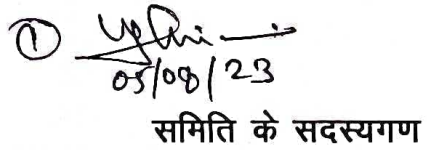 ①
05/08/23
समिति के सदस्यगण